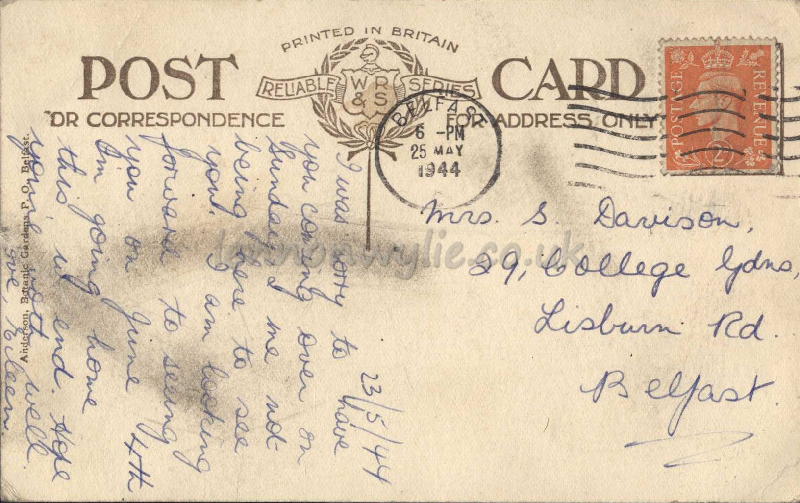 PRINTED IN BRITAIN
POST CARD
RELIABLE WR & S SERIES
OR CORRESPONDENCE
FOR ADDRESS ONLY
BELFAST
6 - PM
25 MAY
1944
POSTAGE
REVENUE
2D
23/5/44
I was sorry to have
you coming over on
Sunday & me not
being here to see
you. I am looking
forward to seeing
you on June 4th
I'm going home
this w end. Hope
you're both well
love, Eileen
Mrs. S. Davison,
29, College Gdns,
Lisburn Rd.
Belfast.
Anderson, Botanic Gardens P. O., Belfast.
lennonwylie.co.uk